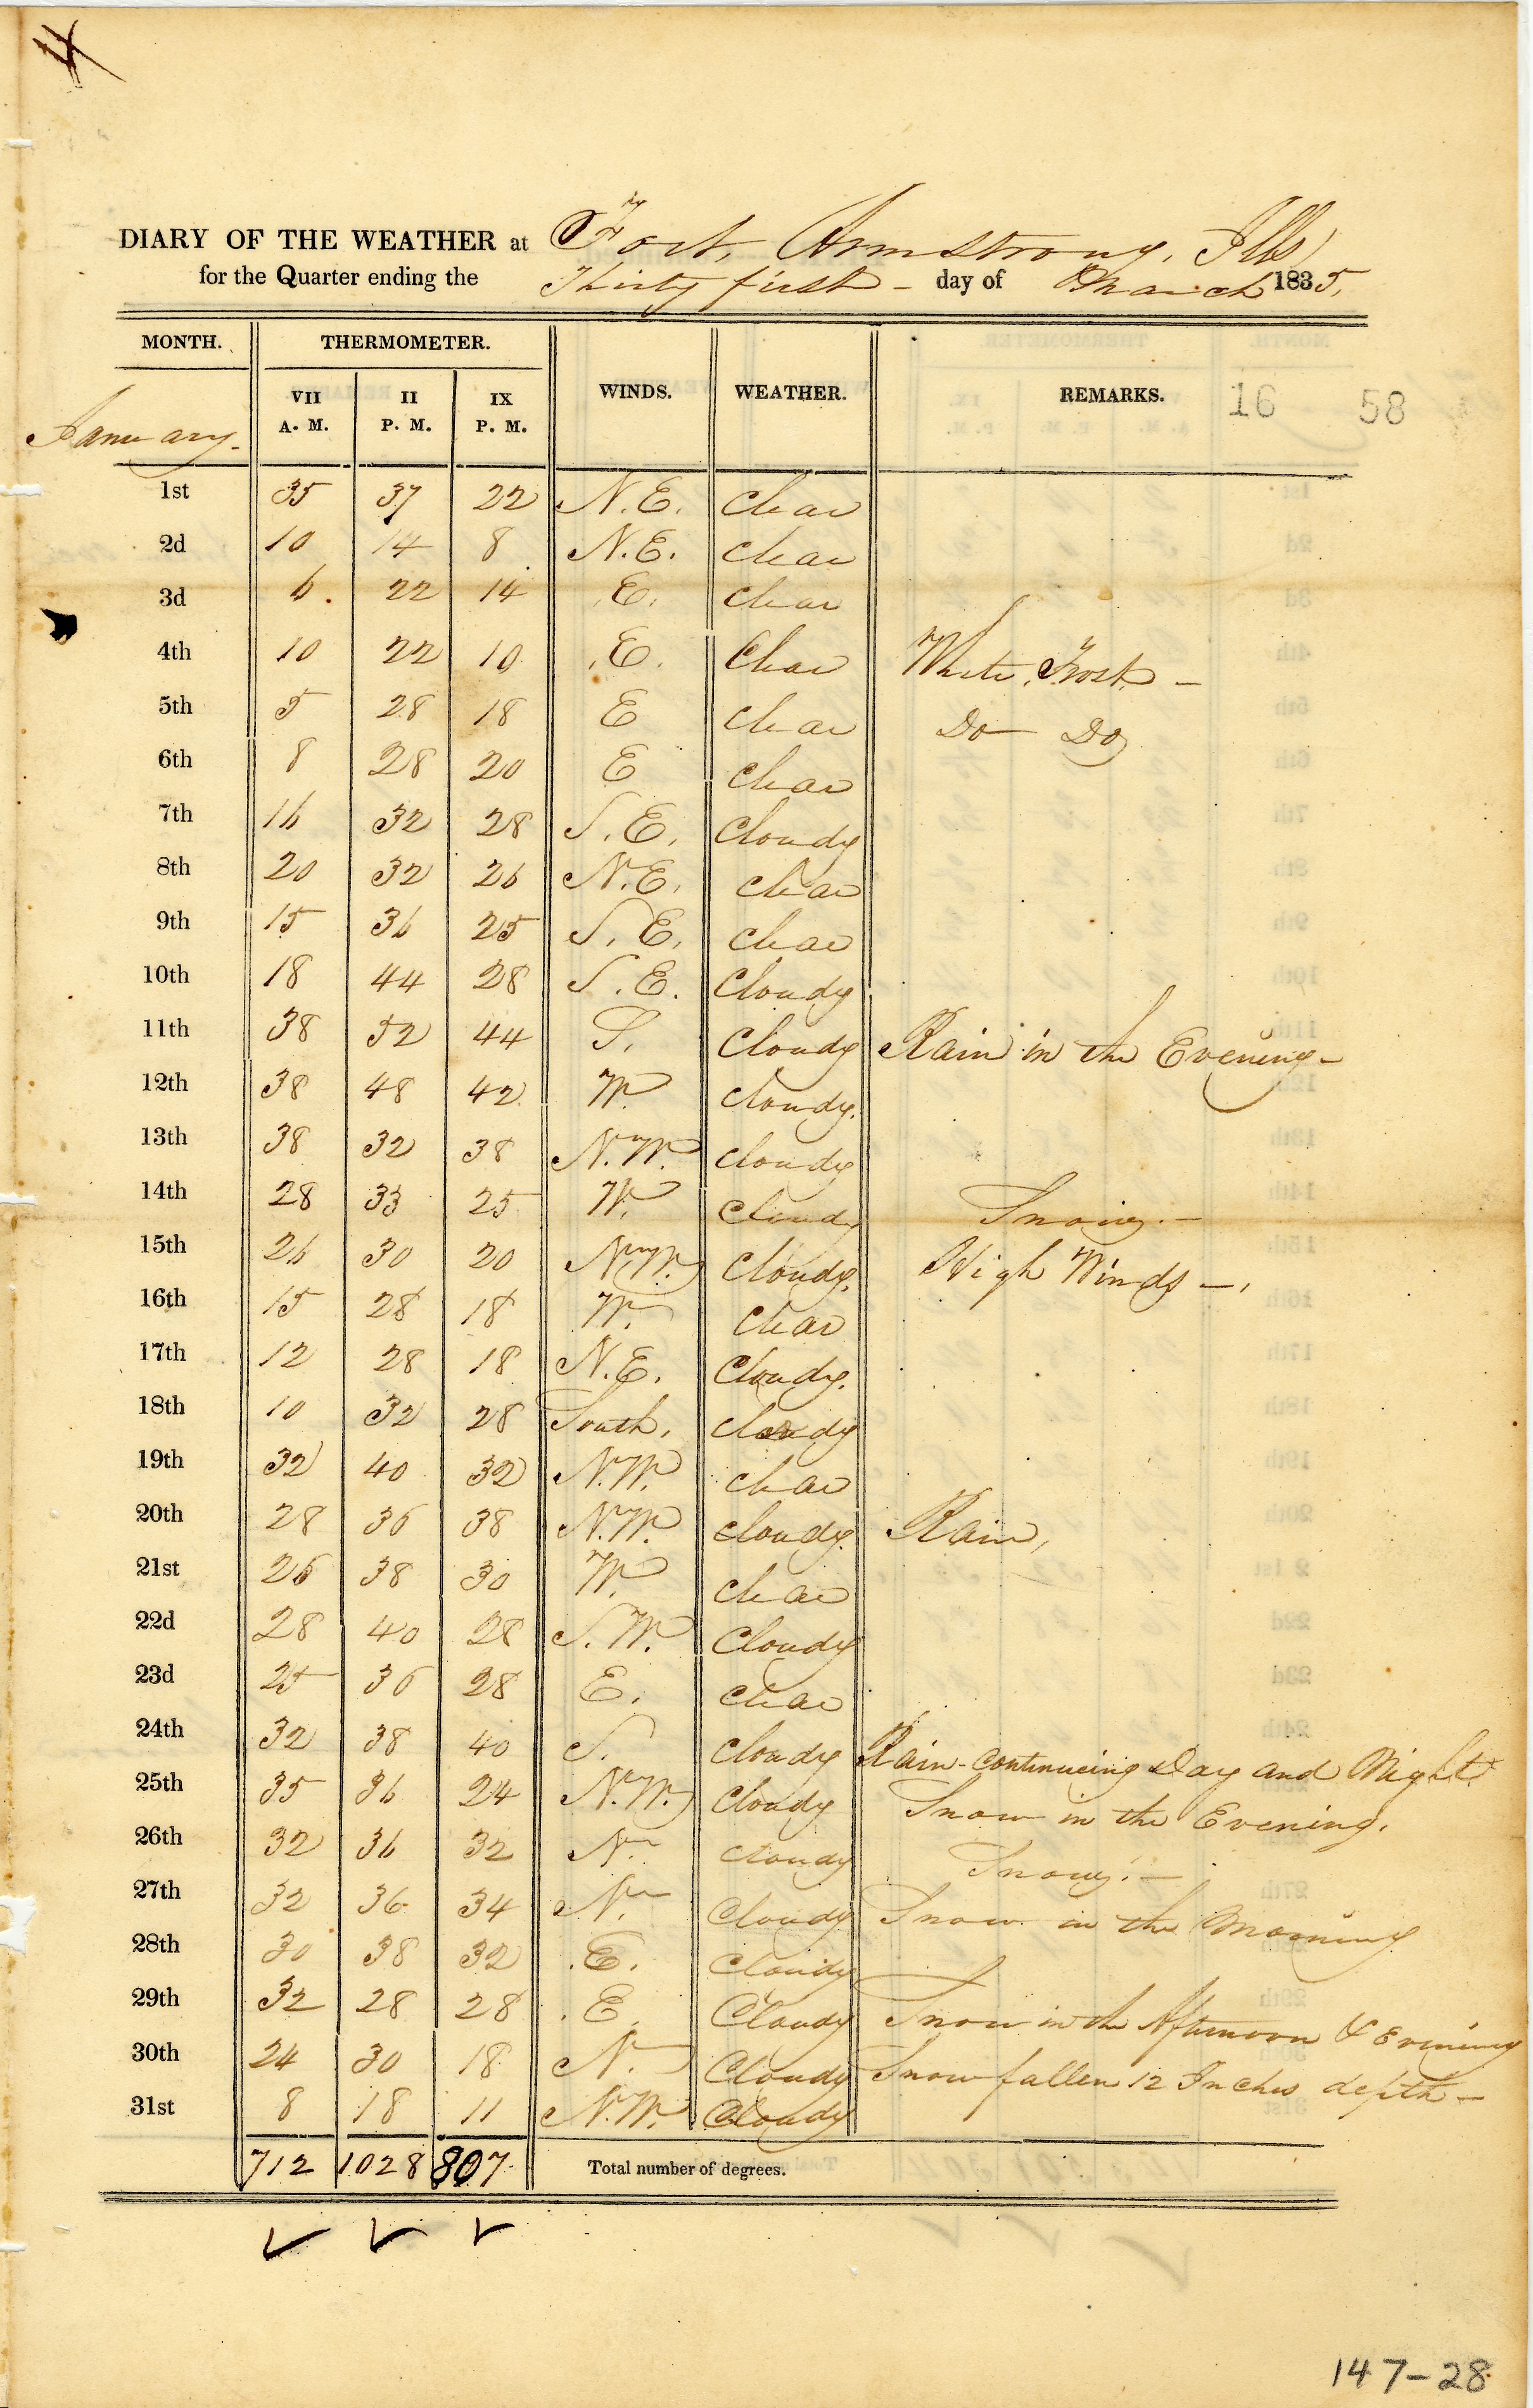 4
DIARY OF THE WEATHER at Fort Armstrong, Ills
for the Quarter ending the Thirty first - day of March 1835,
MONTH. THERMOMETER. WINDS. WEATHER. REMARKS. 16 58
January. VII A. M. II P. M. IX P. M.
1st 35 37 22 N.E. Clear
2d 10 14 8 N.E. Clear
3d 6. 22 14 E. Clear
4th 10 22 10 E. Clear White Frost -
5th 5 28 18 E Clear Do - Do
6th 8 28 20 E Clear
7th 16 32 28 S.E. Cloudy
8th 20 32 26 N.E. Clear
9th 15 36 25 S.E. Clear
10th 18 44 28 S.E. Cloudy
11th 38 52 44 S. Cloudy Rain in the Evening -
12th 38 48 42 W. Cloudy.
13th 38 32 38 N.W. Cloudy
14th 28 33 25 W. Cloudy Snowing. -
15th 26 30 20 N.W. Cloudy. High Winds - .
16th 15 28 18 W. Clear
17th 12 28 18 N.E. Cloudy.
18th 10 32 28 South, Cloudy
19th 32 40 32 N.W. Clear
20th 28 36 38 N.W. Cloudy. Rain,
21st 26 38 30 W. Clear
22d 28 40 28 S.W. Cloudy
23d 25 36 28 E. Clear
24th 32 38 40 S. Cloudy Rain - Continueing Day and Night
25th 35 36 24 N.W. Cloudy Snow in the Evening.
26th 32 36 32 N. Cloudy Snowy. -
27th 32 36 34 N. Cloudy Snow in the Morning
28th 30 38 32 E. Cloudy
29th 32 28 28 E. Cloudy Snow in the Afternoon & Evening
30th 24 30 18 N. Cloudy Snow fallen 12 Inches depth -
31st 8 18 11 N.W. Cloudy
712 1028 807 Total number of degrees.
147-28